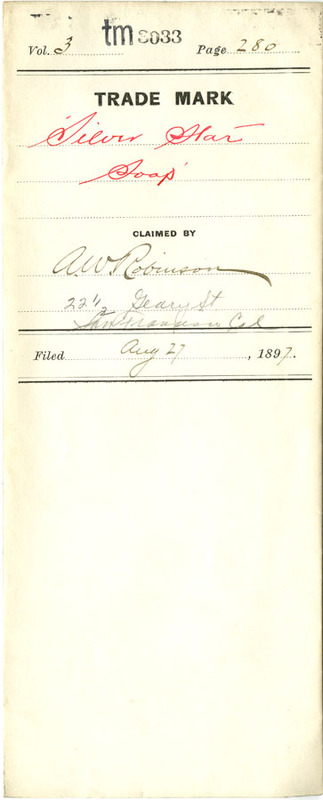 tm 3033
Vol. 3 Page 280
TRADE MARK
"Silver Star
Soap"
CLAIMED BY
A W Robinson
22½ Geary St
San Francisco Cal
Filed Aug 27, 1897.